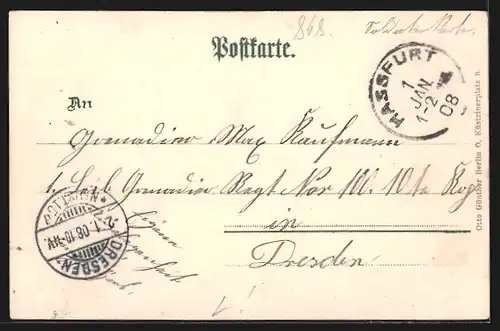 848.
Soldaten Karte.
Postkarte.
HASSFURT
1
JAN
1-2
08
An
Grenadier Max Kaufmann
1. Leib Grenadier Regt Nor 100. 10te Kop
in
Dresden
Eigene
Angelegenheit
DRESDEN
2.1.08.10-11V.
Otto Günther Berlin O, Küstrinerplatz 8.